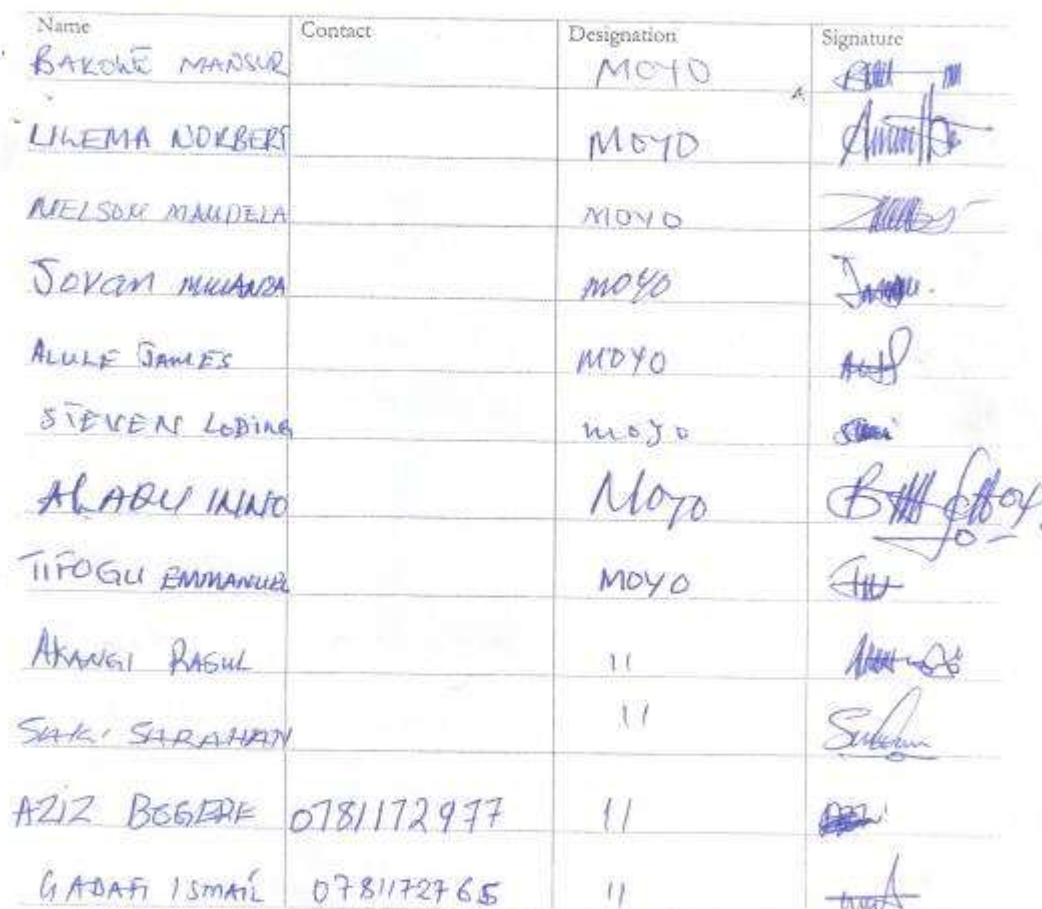 Name Contact Designation Signature
BAKOLE MANSUR MOYO
LILEMA NORBERT MOYO
NELSON MANDELA MOYO
JOVAN MOYO
ALULE JAMES MOYO
STEVEN LODING moyo
ALADU INNO Moyo
TIFOGU EMMANUEL MOYO
AKANGI RASUL 11
SAKI SARAHAN 11
AZIZ BOGERE 0781172977 11
GADAFI ISMAIL 0781172765 11